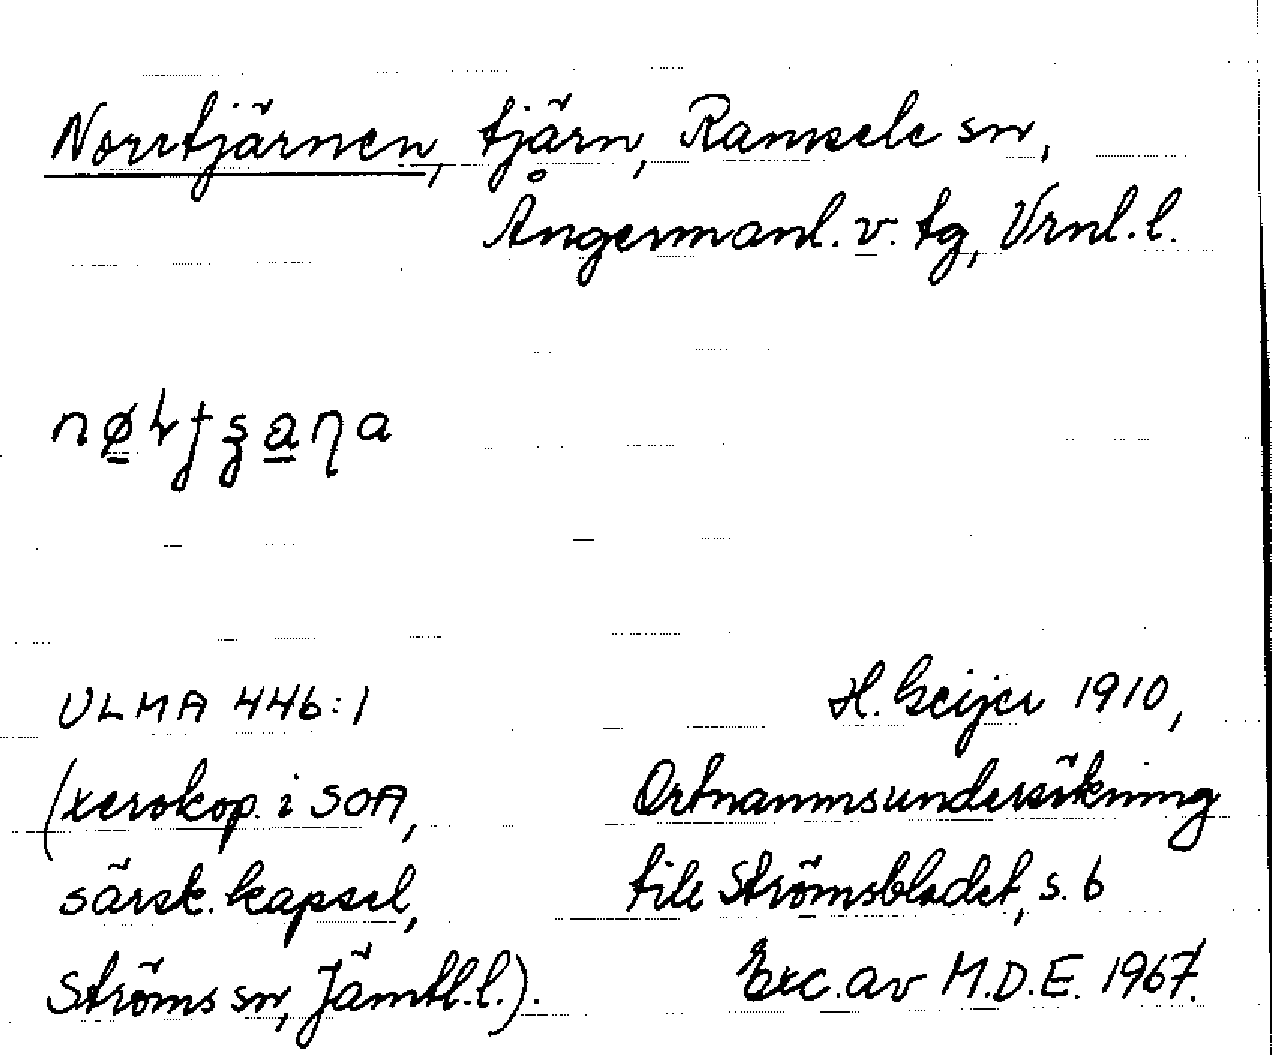 Norrtjärnen, tjärn, Ramsele sn,
Ångermanl. v. tg, Vrnl. l.
ULMA 446:1
H. Geijer 1910,
(xerokop. i SOA,
Ortnamnsundersökning
särsk. kapsel,
till Strömsbladet, s. 6
Ströms sn, Jämtl. l.).
Exc. av M.D.E. 1967.